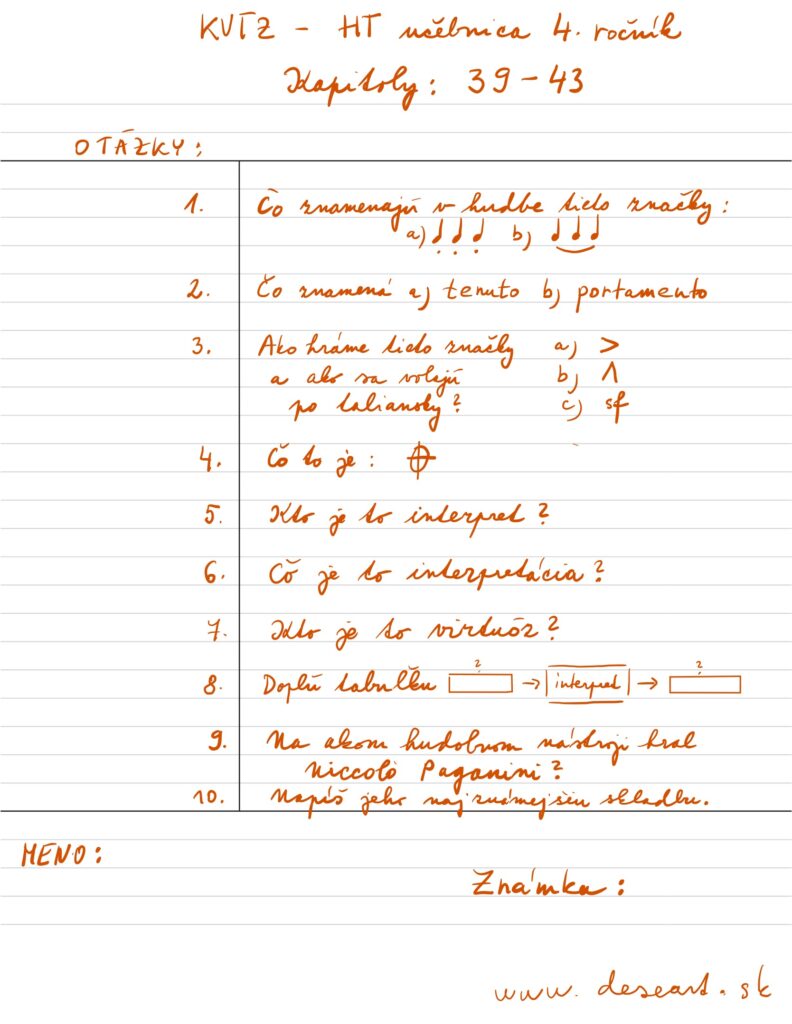 KVÍZ - HT učebnica 4. ročník
Kapitoly: 39-43
OTÁZKY:
1. Čo znamenajú v hudbe tieto značky:
a) b)
2. Čo znamená a) tenuto b) portamento
3. Ako hráme tieto značky a) >
a ako sa volajú b) Λ
po taliansky? c) sf
4. Čo to je:
5. Kto je to interpret?
6. Čo je to interpretácia?
7. Kto je to virtuóz?
? ?
8. Doplň tabuľku → interpret →
9. Na akom hudobnom nástroji hral
Niccoló Paganini?
10. Napíš jeho najznámejšiu skladbu.
MENO:
Známka:
www.deseart.sk